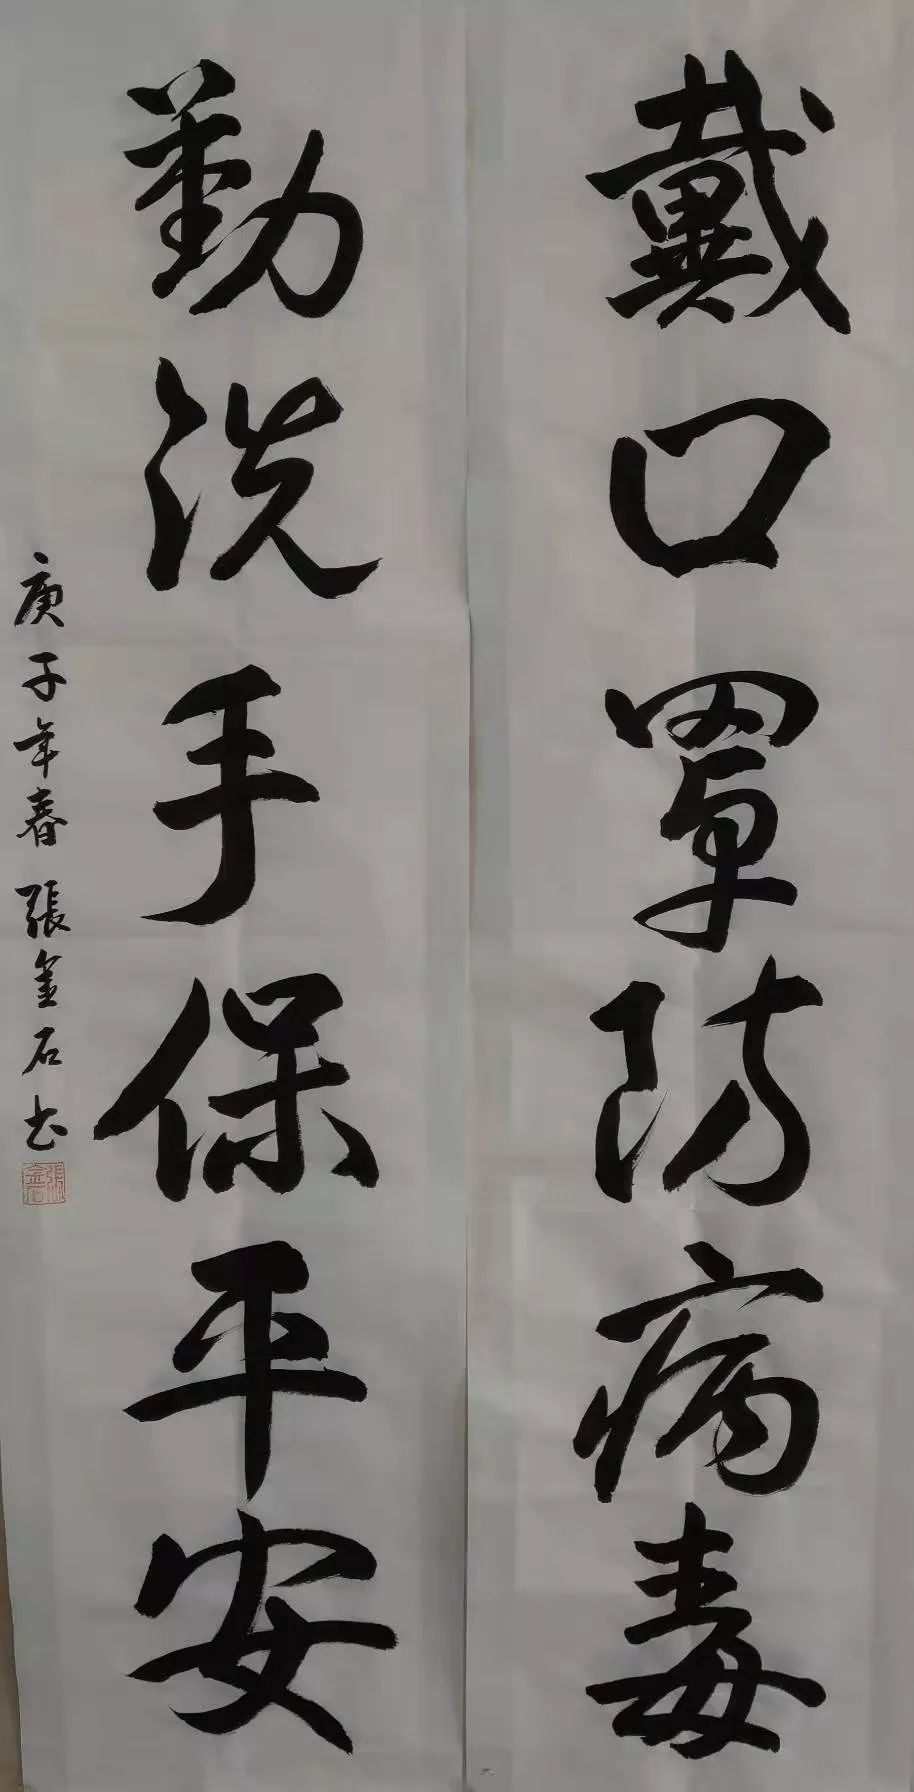 戴口罩防病毒
勤洗手保平安
庚子年春張金石书
張金石